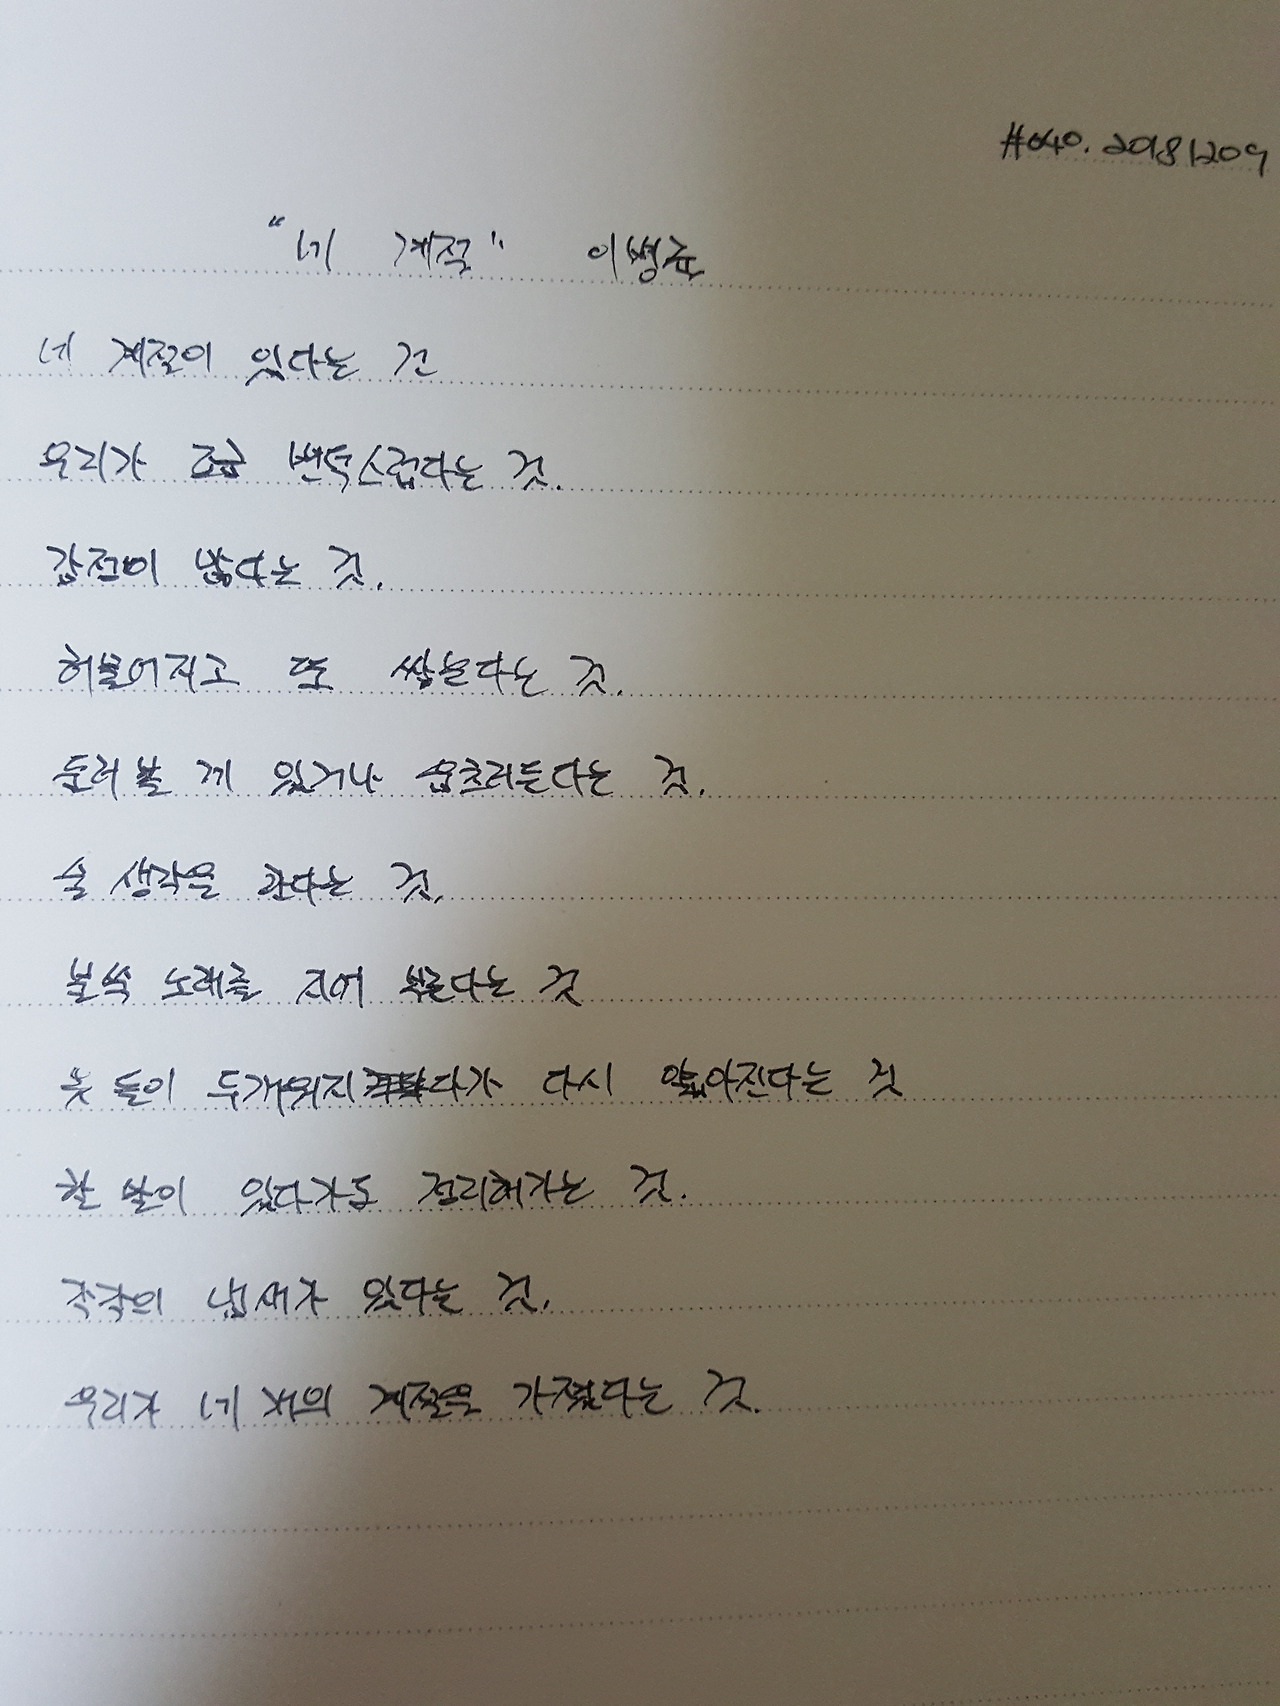 #040. 20181209
"네 계절" 이병률
네 계절이 있다는 건
우리가 조금 변덕스럽다는 것.
감정이 많다는 것.
허물어지고 또 쌓는다는 것.
둘러볼 게 있거나 움츠러든다는 것.
술 생각을 한다는 것.
불쑥 노래를 지어 부른다는 것
옷들이 두꺼워지다가 다시 얇아진다는 것
할 말이 있다가도 정리해가는 것.
각각의 냄새가 있다는 것.
우리가 네 개의 계절을 가졌다는 것.